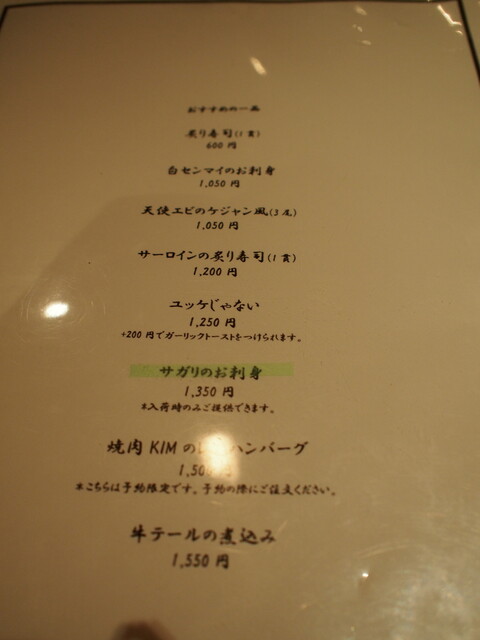 おすすめの一品
炙り寿司(1貫)
600 円
白センマイのお刺身
1,050 円
天使エビのケジャン風(3尾)
1,050 円
サーロインの炙り寿司(1貫)
1,200 円
ユッケじゃない
1,250 円
+200円でガーリックトーストをつけられます。
サガリのお刺身
1,350 円
※入荷時のみご提供できます。
焼肉 KIM の ハンバーグ
円
※こちらは予約限定です。予約の際にご注文ください。
牛テールの煮込み
1,550 円